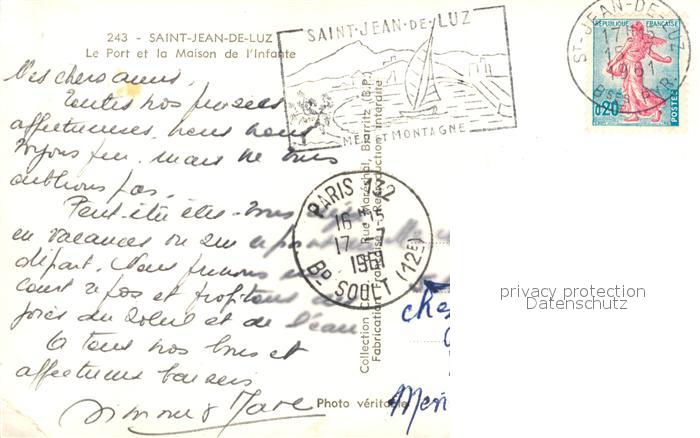 243 - SAINT-JEAN-DE-LUZ
Le Port et la Maison de l'Infante
SAINT-JEAN-DE-LUZ
MER ET MONTAGNE
ST-JEAN-DE-LUZ
17H15
1961
Bses PYR.
RÉPUBLIQUE FRANÇAISE
0,20
POSTES
Mes chers amis,
Toutes nos pensées
affectueuses, nous nous
voyons peu, mais ne vous
oublions pas.
Peut-être êtes-vous
en vacances ou
départ. Nous prenons un
court repos et profitons
joies du soleil et de l'eau
A tous nos bons et
affectueux baisers
Simone & Marc
PARIS 132
16H15
17
1961
BD SOULT (12E)
Collection Rue Maréchal, Biarritz (B.P.)
Fabrication Française - Reproduction interdite
Photo véritable
privacy protection
Datenschutz